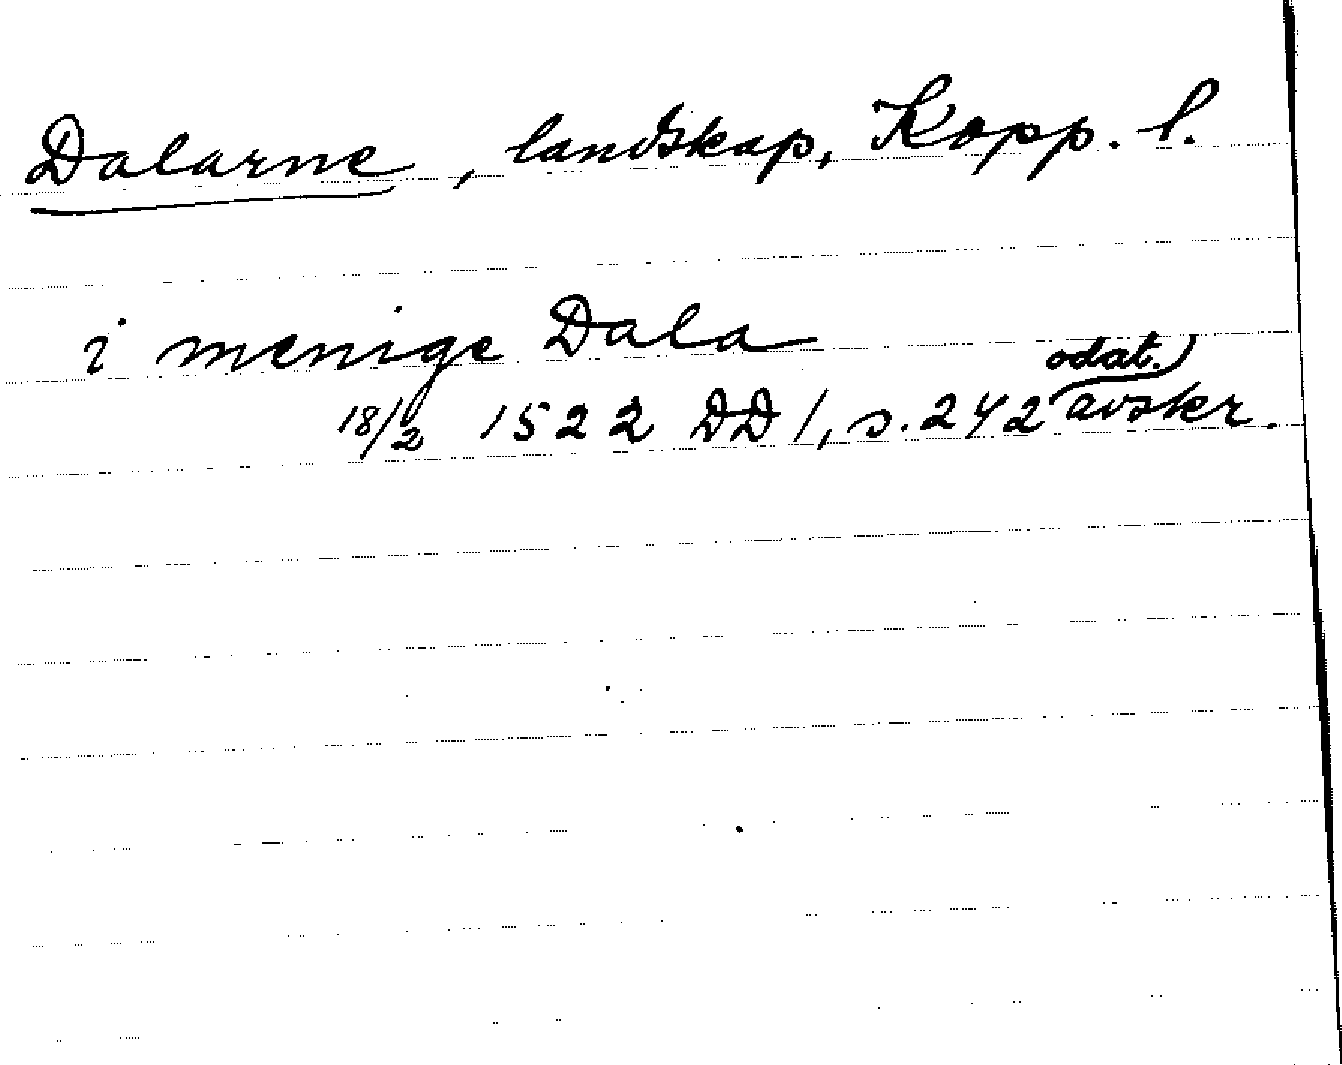 Dalarne, landskap, Kopp. l.
i menige Dala
18/2 1522 DD 1, s. 242 odat. avskr.